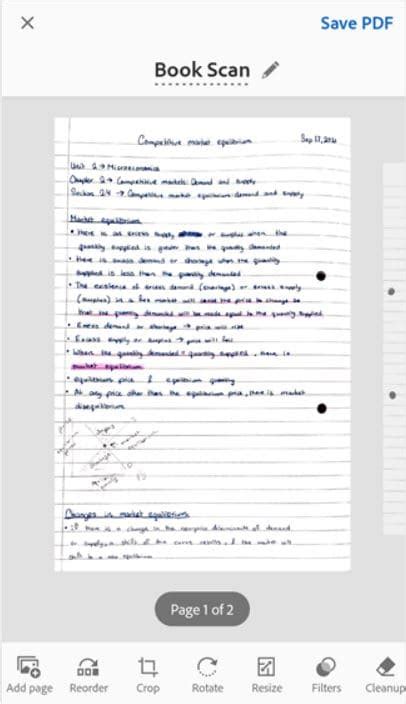 Save PDF
Book Scan
Competitive market equilibrium
Sep 17, 2021
Unit 2 → Microeconomics
Chapter 2 → Competitive markets: Demand and supply
Section 2.4 → Competitive market equilibrium: demand and supply
Market equilibrium
• There is an excess supply or surplus when the
quantity supplied is greater than the quantity demanded
• There is excess demand or shortage when the quantity
supplied is less than the quantity demanded
• The existence of excess demand (shortage) or excess supply
(surplus) in a free market will cause the price to change so
that the quantity demanded will be made equal to the quantity supplied
• Excess demand or shortage → price will rise
• Excess supply or surplus → price will fall
• When the quantity demanded = quantity supplied, there is
market equilibrium
• equilibrium price & equilibrium quantity
• At any price other than the equilibrium price, there is market
disequilibrium
Surplus
market
equilibrium
Shortage
Changes in market equilibrium
• if there is a change in the non-price determinants of demand
or supply, a shift of the curve results, & the market will
shift to a new equilibrium
Page 1 of 2
Add page
Reorder
Crop
Rotate
Resize
Filters
Cleanup